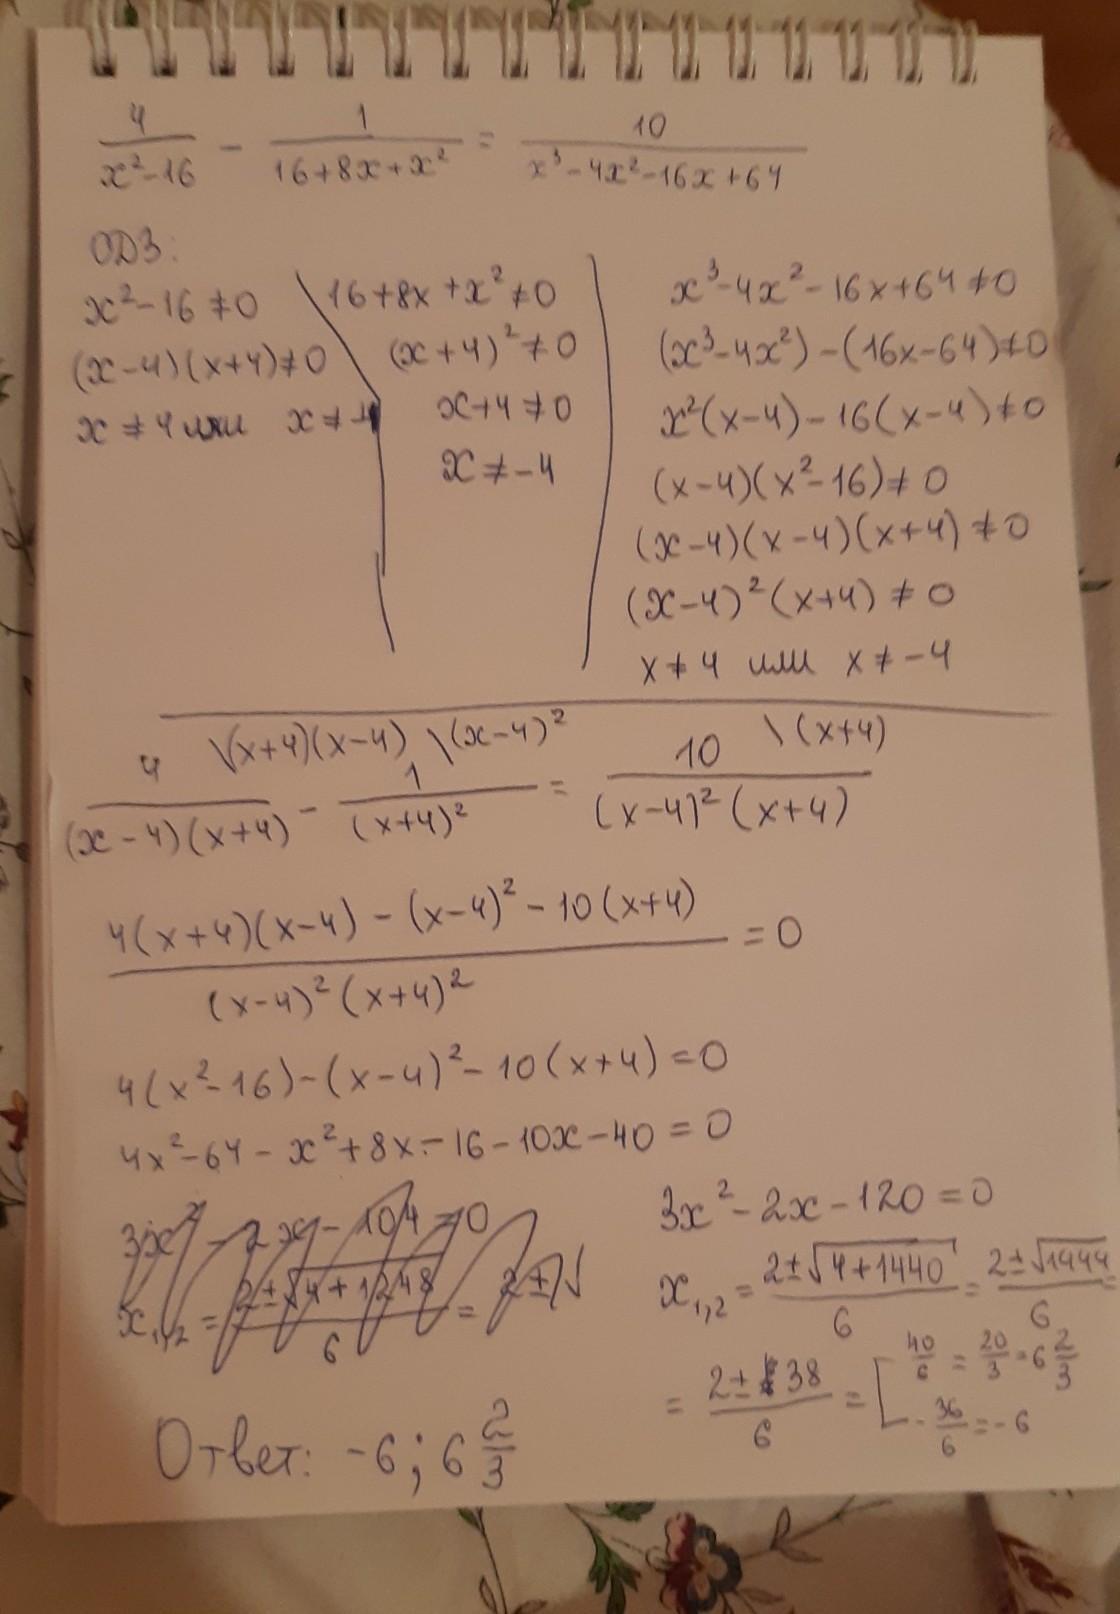 4/(x²-16) - 1/(16+8x+x²) = 10/(x³-4x²-16x+64)
ОДЗ:
x²-16≠0
(x-4)(x+4)≠0
x≠4 или x≠-4
16+8x+x²≠0
(x+4)²≠0
x+4≠0
x≠-4
x³-4x²-16x+64≠0
(x³-4x²)-(16x-64)≠0
x²(x-4)-16(x-4)≠0
(x-4)(x²-16)≠0
(x-4)(x-4)(x+4)≠0
(x-4)²(x+4)≠0
x≠4 или x≠-4
4\(x+4)(x-4)/((x-4)(x+4)) - 1\(x-4)²/(x+4)² = 10\(x+4)/((x-4)²(x+4))
(4(x+4)(x-4)-(x-4)²-10(x+4))/((x-4)²(x+4)²) = 0
4(x²-16)-(x-4)²-10(x+4)=0
4x²-64-x²+8x-16-10x-40=0
3x²-2x-104=0
x₁,₂ = (2±√(4+1248))/6 = 2±√
3x²-2x-120=0
x₁,₂ = (2±√(4+1440))/6 = (2±√1444)/6
= (2±38)/6 = [ 40/6 = 20/3 = 6 2/3
-36/6 = -6
Ответ: -6; 6 2/3